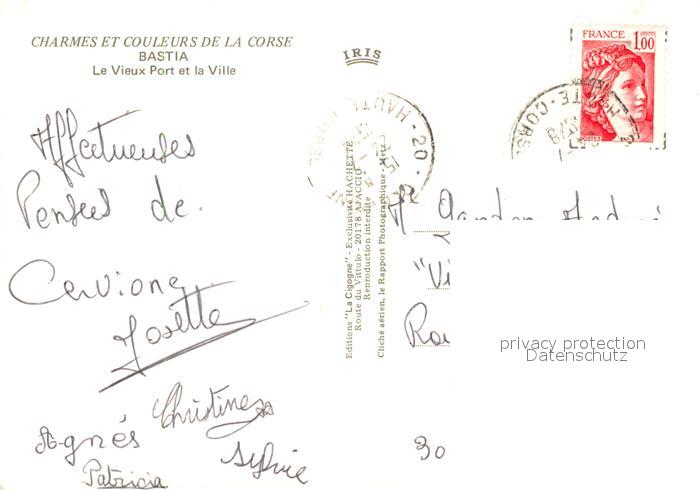 CHARMES ET COULEURS DE LA CORSE
BASTIA
Le Vieux Port et la Ville
IRIS
FRANCE
1,00
POSTES
20 - HAUTE-CORSE
Affectueuses
Pensées de.
Cervione
Josette
Christine
Agnés
Sylvie
Patricia
Editions "La Cigogne" - Exclusivité HACHETTE
Route du Vittulo - 20178 AJACCIO
Reproduction interdite
Cliché aérien, le Rapport Photographique - Metz
"Vi
Rou
30
privacy protection
Datenschutz